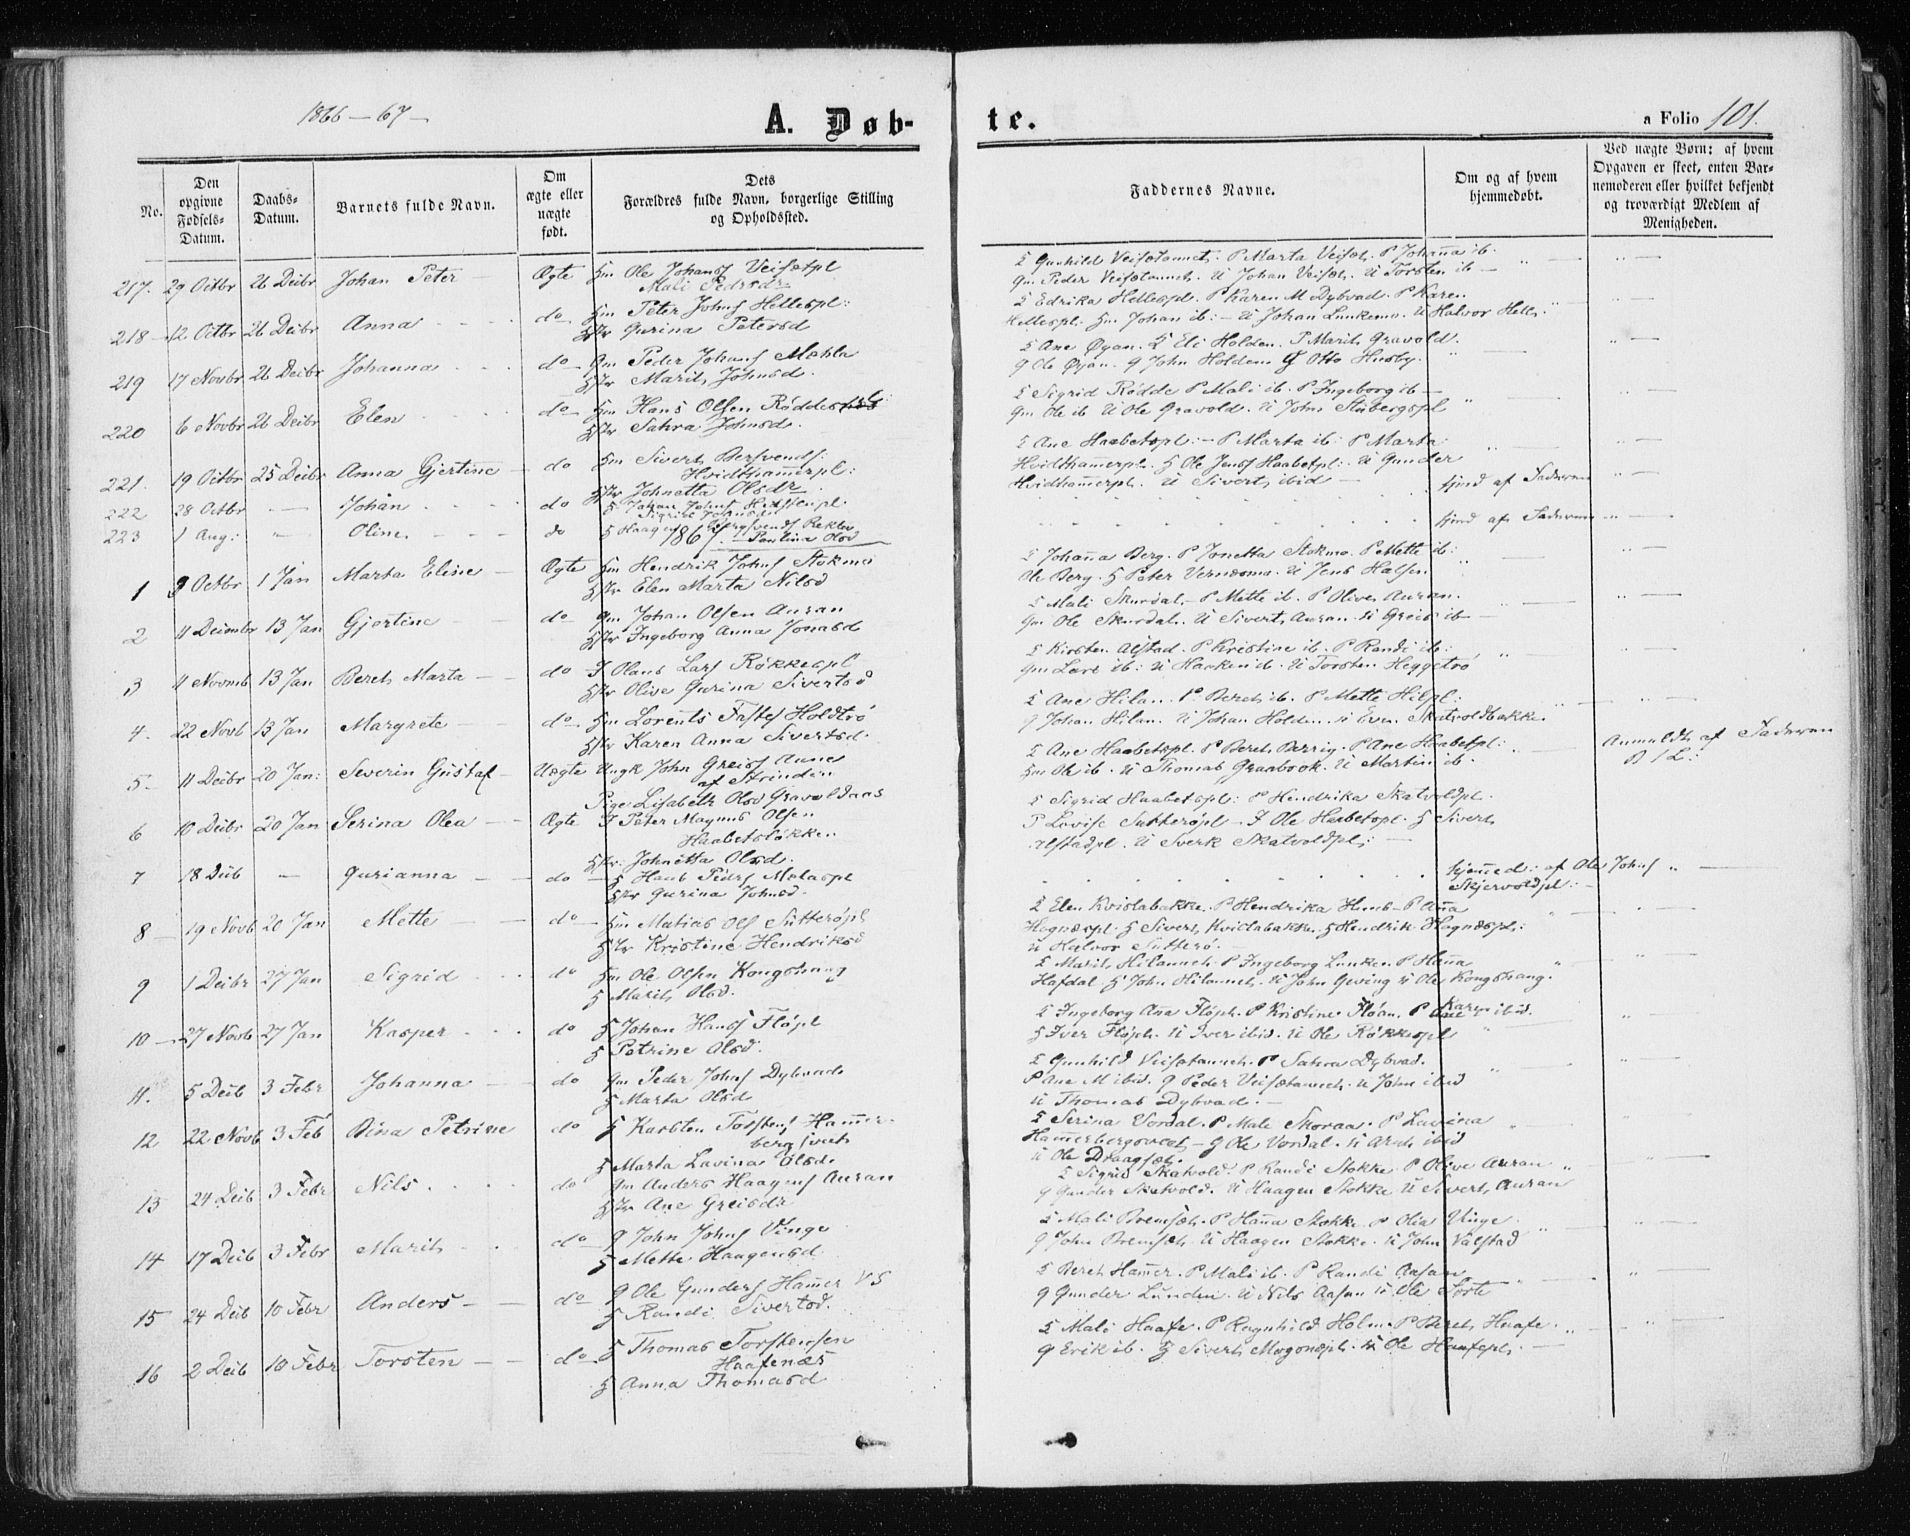 1866-67-
A. Døb-
te.
a Folio 101.
No.
Den opgivne Fødsels-Datum.
Daabs-Datum.
Barnets fulde Navn.
Om ægte eller uægte født.
Dets Forældres fulde Navn, borgerlige Stilling og Opholdssted.
Faddernes Navne.
Om og af hvem hjemmedøbt.
Ved uægte Børn: af hvem Opgaven er skeet, enten Barnemoderen eller hvilket bekjendt og troværdigt Medlem af Menigheden.
217. 29 Octbr 26 Decbr Johan Peter Ægte Hm Ole Johans Veisætpl
Mali Pedrsdr
218 12 Octbr 26 Decbr Anna do Hm Peter Johns Hellespl:
Hstr Gurina Petersd
219 17 Novbr 26 Decbr Johanna do Gm Peder Johans Mæhla
Hstr Marit Johnsd.
220 6 Novbr 26 Decbr Elen do Hm Hans Olsen Røddes
Hstr Sahra Johnsd.
221. 19 Octbr 25 Decbr Anna Gjertine do Hm Sivert Bersvends:
Hvidthamerpl:
Hstr Johnetta Olsdr
222 28 Octbr Johan do
223 1 Aug: Oline do
1867. Paulina Olsd
1 3 Octbr 1 Jan Marta Eline Ægte Hm Hendrik Johns Stokmo
Hstr Elen Marta Nilsd
2 11 Decembr 13 Jan Gjertine do Gm Johan Olsen Auran
Hstr Ingeborg Anna Jonasd
3 11 Novmb 13 Jan Beret Marta do I Olaus Lars Røkkespl
Hstr Olive Gurina Sivertsd
4. 22 Novb 13 Jan Margrete do Hm Lorents Holdtrø
Hstr Karen Anna Sivertsd.
5. 11 Decbr 20 Jan: Severin Gustaf Uægte Ungk John Greiss Aunes
af Strinden
Pige Lisabeth Olsd Gravoldaas
6 10 Decbr 20 Jan Serina Olea Ægte I Peter Magnus Olsen
Haabetsløkken
Hstr. Johnetta Olsd.
7 18 Decb Gurianna do Hans Peders Molaspl
Hstr Gurina Johnsd.
8 19 Novb 20 Jan Mette do Hm Matias Ols Sutterøpl
Hstr Kristine Hendriksd
9 1 Decbr 27 Jan Sigrid do Hm Ole Olsen Kongshaug
H Marit Olsd.
10 27 Novb 27 Jan Kasper do H Johan Hans Fløpl
H Petrine Olsd.
11. 5 Decb 3 Febr Johanna do Gm Peder Johns Dybvad
H Marta Olsd
12 22 Novb 3 Feb Dina Petrine do H Karsten Torstens Hamer
berg
H Marta Lavina Olsd.
13 24 Decb 3 Febr Nils do Gm Anders Haagens Auran
Hstr Ane Greisdr
14 17 Decb 3 Febr Marit do G John Johns Vinge
H Mette Haagensd
15 24 Decb 10 Febr Anders do G Ole Gunders Hamer VS
H Randi Sivertsd.
16 2 Decb 10 Febr Torsten do H Thomas Torstensen
Haafenæs
H Anna Thomasd
H Gunhild Veisætaunet. P Marta Veisæt. P Johana ib.
Gm Peder Veisætaunet. U Johan Veisæt. U Torsten ib
H Edrika Hellespl. P Karen M Dybvad. P Karen
Hellespl. Hm Johan ib: U Johan Lunkemo. U Halvor Helle.
H Ane Øyan. H Eli Holden. P Marit Gravold.
G Ole Øyan. G John Holden. G Otto Husby.
H Sigrid Rødde P Mali ib. P Ingeborg ib
Gm Ole ib U Ole Gravold. U John Stubergspl
H Ane Haabetspl: P Marta ib: P Marta
Hvidthamerpl. H Ole Jens Haabetpl: U Gunder
Hvidthamerpl. U Sivert ibid
hjmd af Faderen
hjmd af Faderen
H Johana Berg. P Jonetta Stokmo. P Mette ib:
Ole Berg. H Peter Vernesmo. U Jens Halsen
H Mali Skurdal. P Mette ib. P Olive Auran.
Gm Ole Skurdal. U Sivert Auran. U Greis ib
H Kirsten Alstad. P Kristine ib. P Randi ib:
Gm Lars ib: U Haaken ib. U Torsten Heggstrø
H Ane Hilan. P Beret ib. P Mette Hilpl:
G Johan Hilan. U Johan Holden. U Even Skatvoldbakke
H Ane Haabetspl. P Beret Berrig. P Ane Haabetpl:
Hm Ole ib. U Thomas Graabrok. U Martin ib.
Anmeldt af Faderen
H Sigrid Haabetspl: P Hendrika Skatvoldpl.
P Lovise Sutterøpl. I Ole Haabetspl. H Sivert
Alstadpl. U Sverk Skatvoldpl:
hjemed: af Ole Johns
Skjervoldpl:
H Elen Kvislabakke. P Hendrika Hembre P Ana
Hognæspl. H Sivert Kvislabakke. H Hendrik Hognæspl:
U Halvor Sutterø.
H Marit Hilaunet. P Ingeborg Lunken P Hana
Hafdal H John Hilaunet. U John Geving U Ole Kongshaug.
H Ingeborg Ana Fløpl. P Kristine Fløan. P Karen ibid.
H Iver Fløpl. U Iver ibid. U Ole Røkkespl
H Gunhild Veisetaunet. P Sahra Dybvad.
P Ane M ibid. G Peder Veisetaunet. U John ibid
U Thomas Dybvad.
H Serina Vordal. P Male Skoraa. P Lavina
Hamerberg G Ole Vordal. U Arnt ibid
U Ole Draagset.
H Sigrid Skatvold. P Randi Stokke P Olive Auran
G Gunder Skatvold. U Haagen Stokke U Sivert Auran
H Mali Bremset. P Hana Stokke. P Olia Vinge
G John Bremset. U Haagen Stokke. U John Valstad
H Beret Hamer. P Mali ib. P Randi Aasan
G Gunder Lunden. U Nils Aasan U Ole Sorte
H Mali Haafe. P Ragnhild Holm. P Beret Haafe.
G Erik ib. H Sivert Mogonspl. U Ole Haafepl.